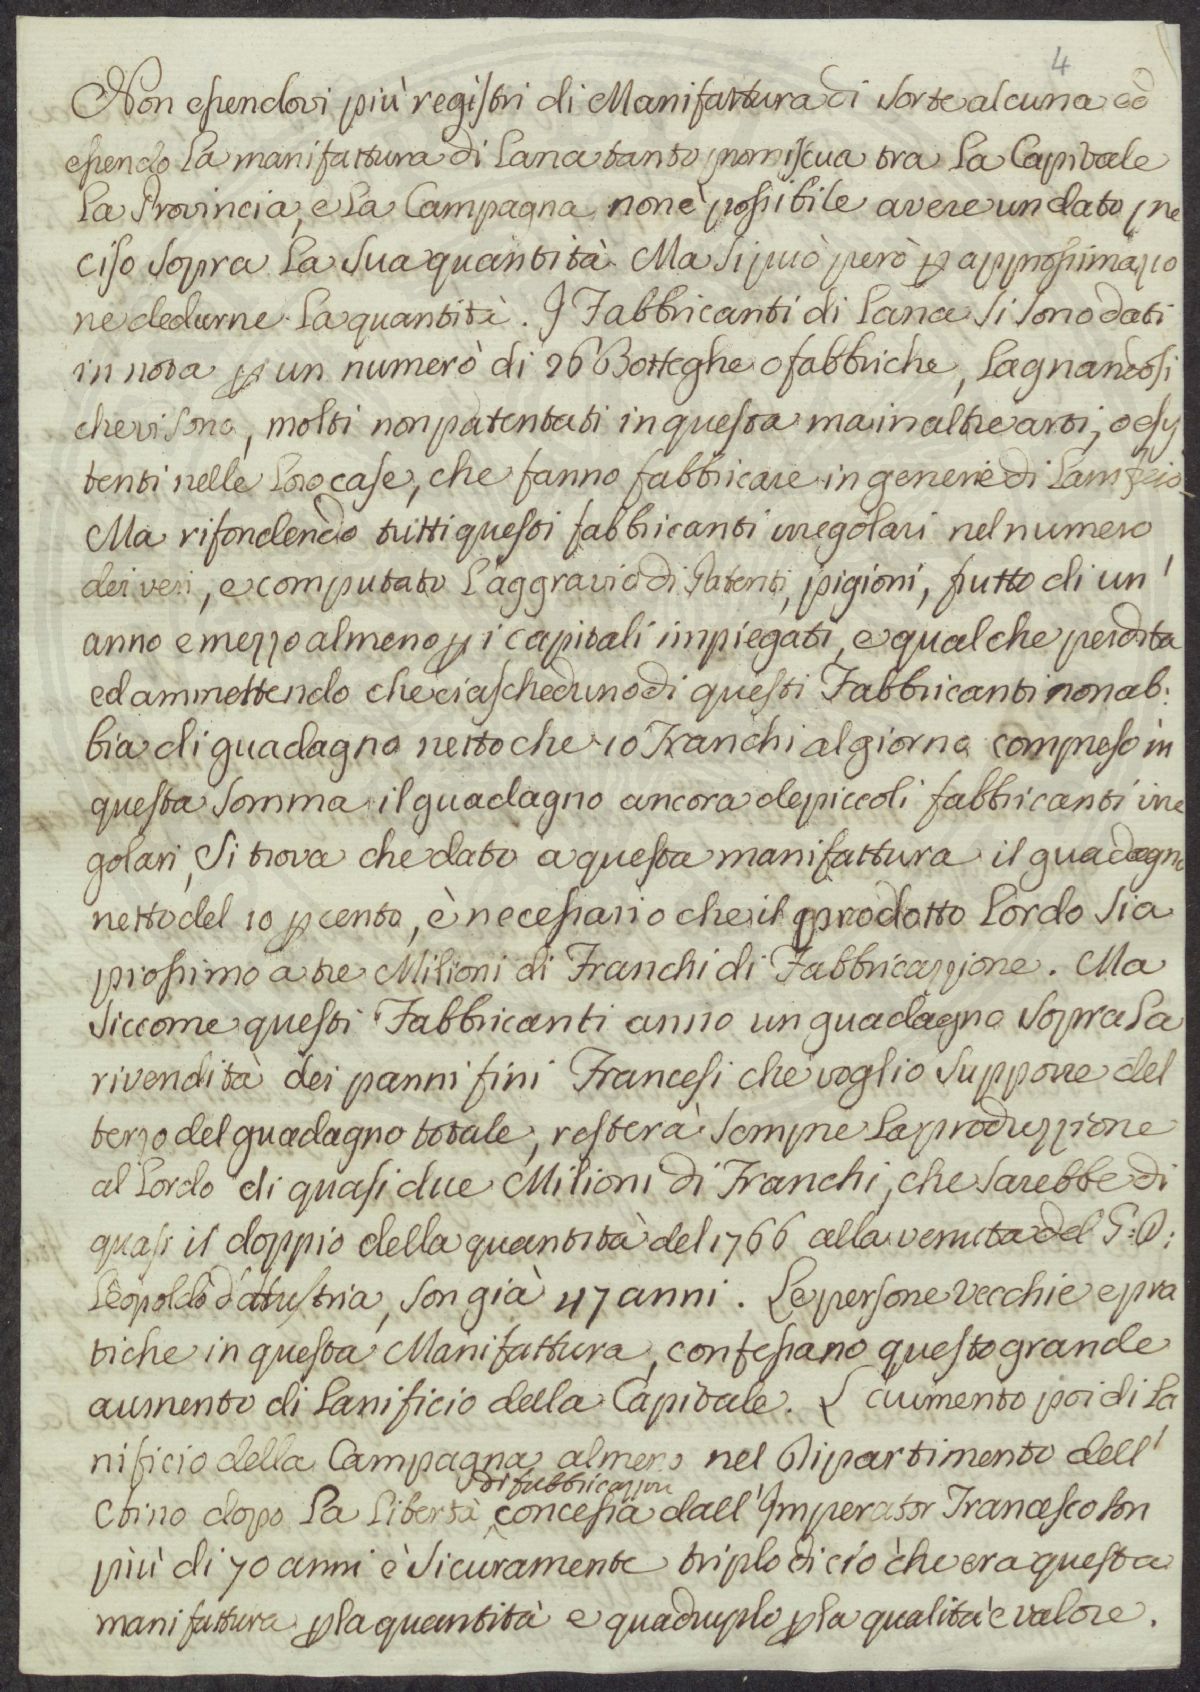 4
Non essendovi più registri di Manifattura di sorte alcuna ed
essendo la manifattura di Lana tanto promiscua tra la Capitale
la Provincia, e la Campagna non è possibile avere un dato pre
ciso sopra la sua quantità. Ma si può però p approssimazio
ne dedurne la quantità. I Fabbricanti di Lana si sono dati
in nota p un numero di 26 Botteghe o fabbriche, lagnandosi
che vi sono, molti non patentati in questa ma in altre arti, o esis
tenti nelle loro case, che fanno fabbricare in genere di Lanificio
Ma rifondendo tutti questi fabbricanti irregolari nel numero
dei veri, e computato l'aggravio di Patenti, pigioni, frutto di un'
anno e mezzo almeno p i capitali impiegati, e qualche perdita
ed ammettendo che ciascheduno di questi Fabbricanti non ab:
bia di guadagno netto che 10 Franchi al giorno compreso in
questa somma il guadagno ancora de piccoli fabbricanti irre
golari, si trova che dato a questa manifattura il guadagno
netto del 10 p cento, è necessario che il prodotto Lordo sia
prossimo a tre Milioni di Franchi di Fabbricazzione. Ma
siccome questi Fabbricanti anno un guadagno sopra la
rivendita dei panni fini Francesi che voglio supporre del
terzo del guadagno totale, resterà sempre la produzzione
al Lordo di quasi due Milioni di Franchi, che sarebbe di
quasi il doppio della quantità del 1766 alla venuta del G: D:
Leopoldo d'Austria, son già 47 anni. Le persone vecchie e pra
tiche in questa Manifattura, confessano questo grande
aumento di Lanificio della Capitale. L'aumento poi di La
nificio della Campagna almeno nel Dipartimento dell'
di fabbricazione
Ombrone dopo la libertà concessa dall'Imperator Francesco son
più di 70 anni è sicuramente triplo di ciò che era questa
manifattura p la quantità e quadruplo p la qualità e valore.